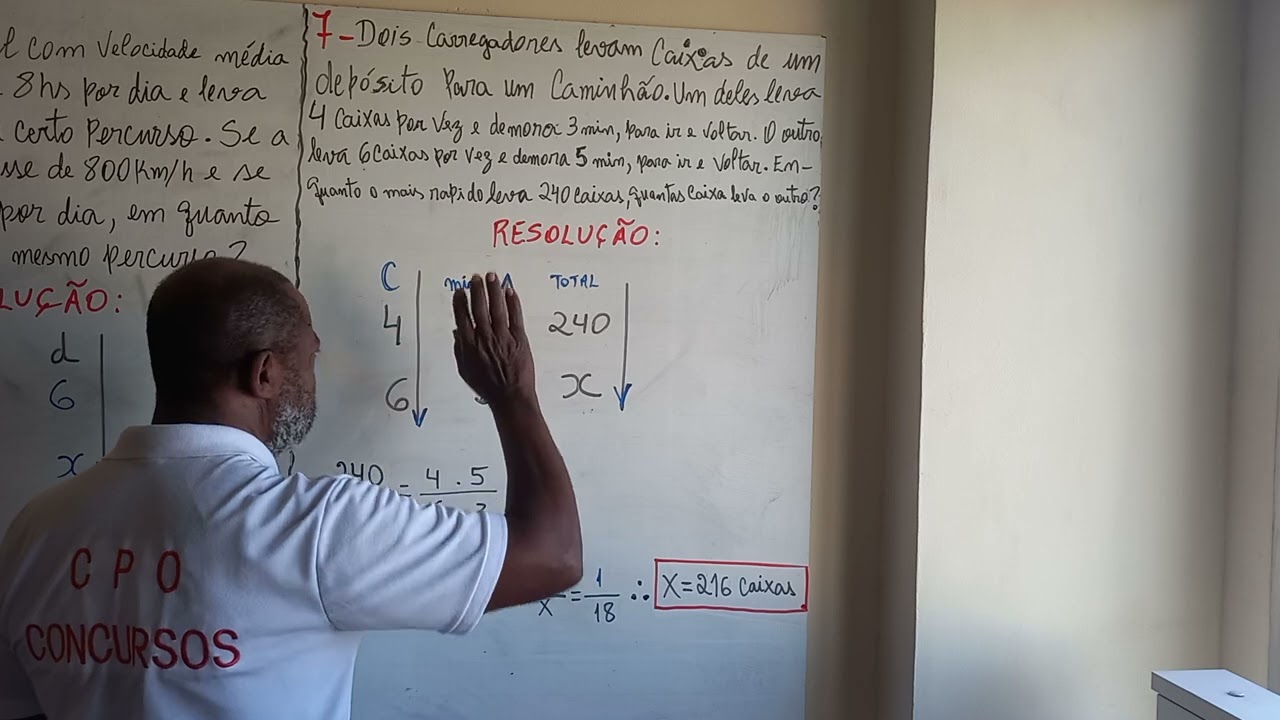 l com Velocidade média
8hs por dia e leva
certo Percurso. Se a
sse de 800Km/h e se
por dia, em quanto
mesmo percurso?
LUÇÃO:
d
6
x
7- Dois Carregadores levam Caixas de um
depósito Para um Caminhão. Um deles leva
4 Caixas por Vez e demora 3 min, para ir e Voltar. O outro,
leva 6 Caixas por Vez e demora 5 min, para ir e Voltar. En-
quanto o mais rapido leva 240 Caixas, quantas Caixa leva o outro?
RESOLUÇÃO:
C TOTAL
4 240
6 x
240 = 4 . 5
x = 1/18 ∴ X=216 Caixas
C P O
CONCURSOS